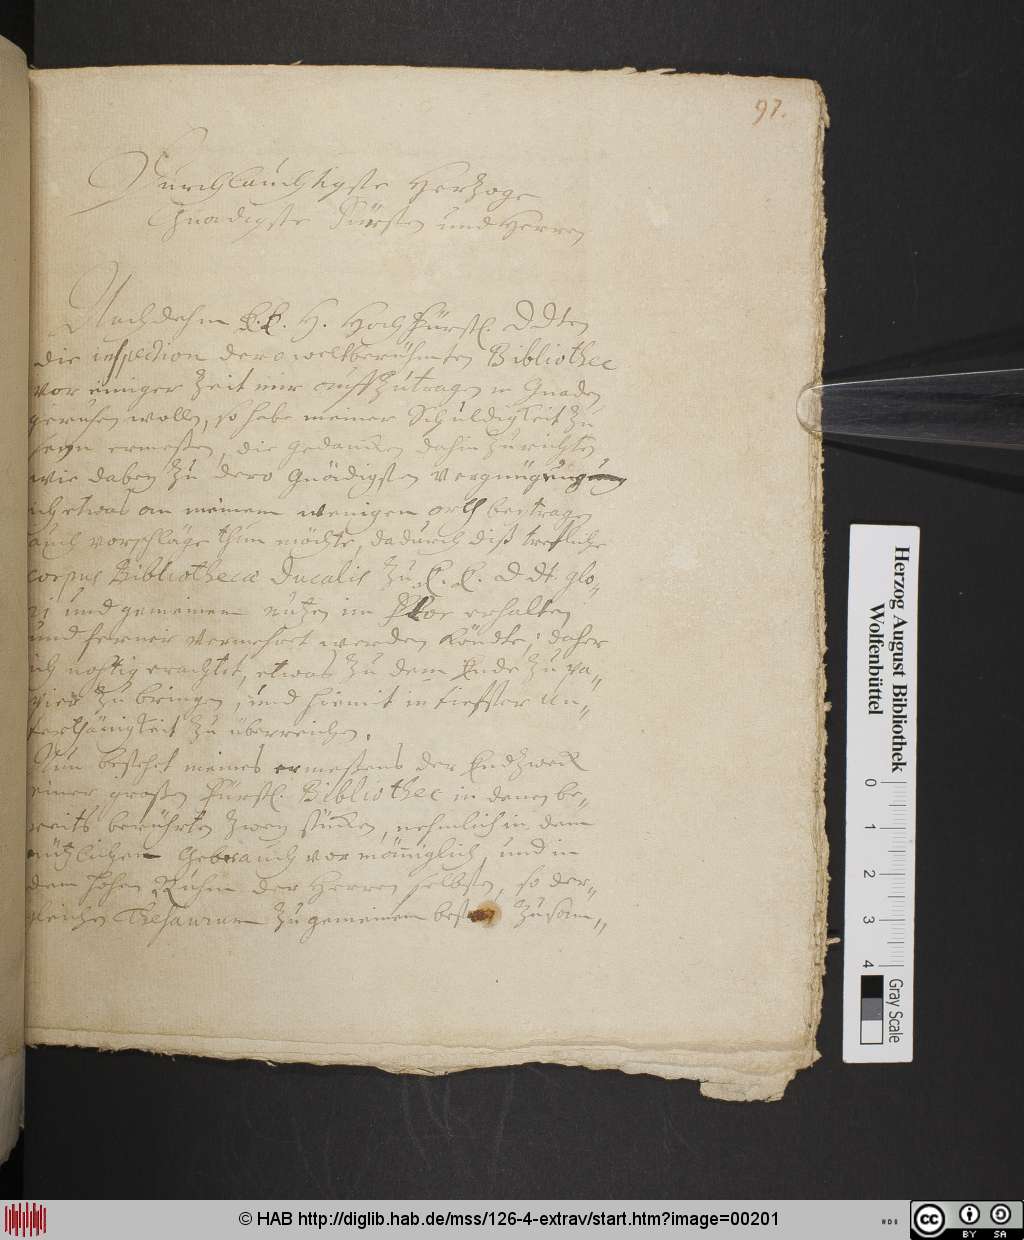 97.
Durchlauchtigste Hertzoge
Gnadigste Fürsten und Herren
Nachdehm E. E. H. HochFürstl. DDten
die inspection dero weltberühmten Bibliothec
vor einiger Zeit mir auffzutragen in Gnaden
geruhen wollen, so habe meiner Schuldigkeit zu
seyn ermeßen, die gedancken dahin zurichten
wie daben zu dero Gnädigsten vergnügung
ich etwas an meinem wenigen orth beytragen
auch vorschläge thun möchte, dadurch diß trefliche
corpus Bibliothecæ Ducalis zu E. E. D dt. glo-
ri und gemeinem nutzen im Flor erhalten
und ferner vermehret werden köndte; daher
ich nothig erachtet, etwas zu dem Ende zu pa-
pier zu bringen, und hiemit in tieffster un-
terthänigkeit zu überreichen.
Nun bestehet meines ermeßens der Endzweck
einer großen Fürstl. Bibliothec in denen be-
reits berührten zwey stücken, nehmlich in dem
nützlichen Gebrauch vor männiglich, und in
dem hohen Ruhm der Herren selbsten, so der-
gleichen Thesaurum zu gemeinem besten zusam-
Herzog August Bibliothek
Wolfenbüttel
0 1 2 3 4
Gray Scale
© HAB http://diglib.hab.de/mss/126-4-extrav/start.htm?image=00201
cc BY SA